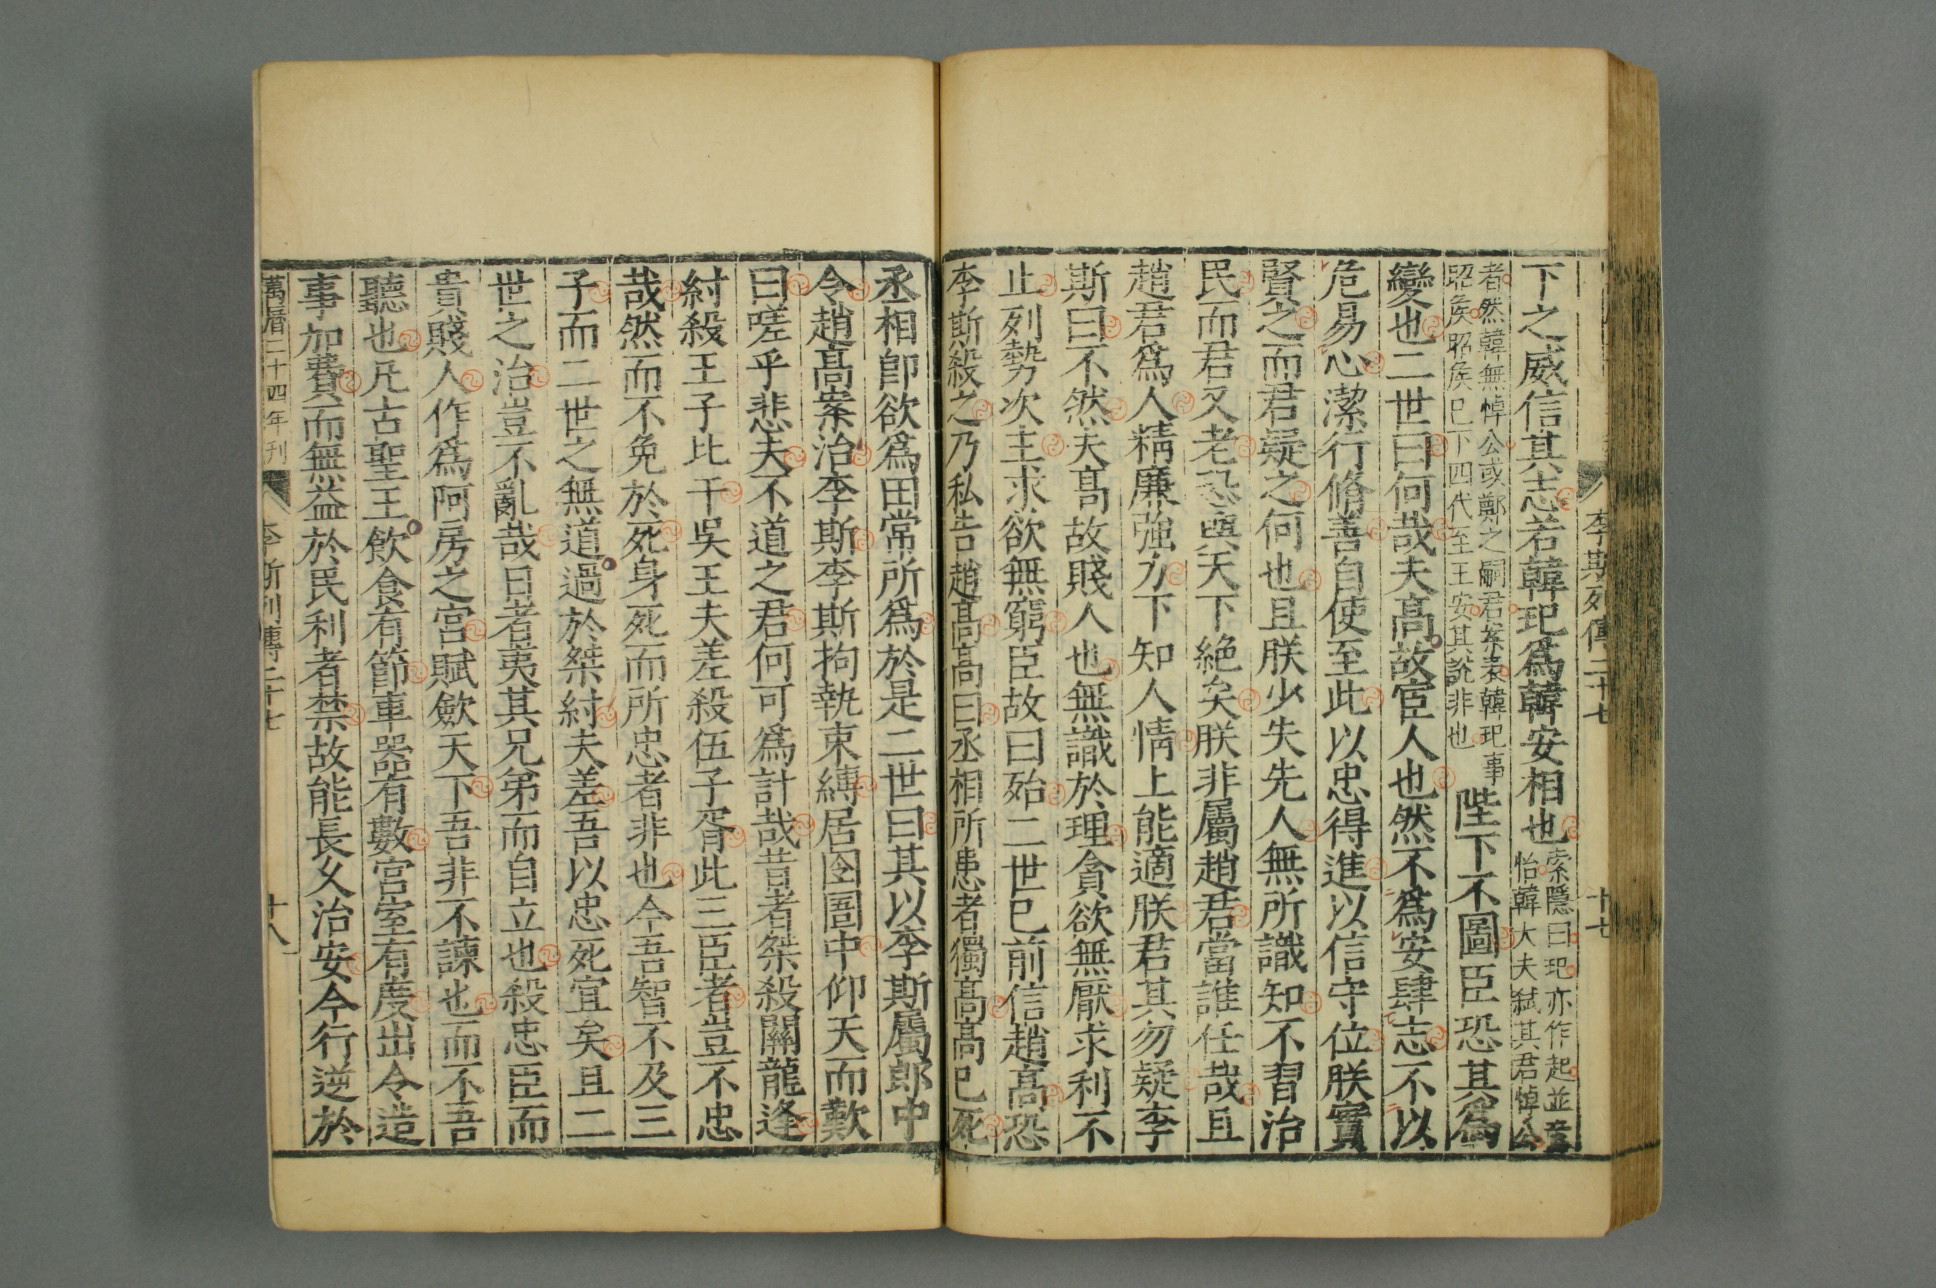 李斯列傳二十七
十七
下之威信其志若韓玘爲韓安相也索隱曰玘亦作起並音
怡韓大夫弑其君悼公
者然韓無悼公或鄭之嗣君案表韓玘事
昭矦昭矦已下四代至王安其說非也
陛下不圖臣恐其爲
變也二世曰何哉夫高故宦人也然不爲安肆志不以
危易心潔行脩善自使至此以忠得進以信守位朕實
賢之而君疑之何也且朕少失先人無所識知不習治
民而君又老恐與天下絶矣朕非屬趙君當誰任哉且
趙君爲人精廉強力下知人情上能適朕君其勿疑李
斯曰不然夫高故賤人也無識於理貪欲無厭求利不
止列勢次主求欲無窮臣故曰殆二世已前信趙高恐
李斯殺之乃私告趙高高曰丞相所患者獨高高已死
丞相卽欲爲田常所爲於是二世曰其以李斯屬郎中
令趙高案治李斯李斯拘執束縛居囹圄中仰天而歎
曰嗟乎悲夫不道之君何可爲計哉昔者桀殺關龍逢
紂殺王子比干吳王夫差殺伍子胥此三臣者豈不忠
哉然而不免於死身死而所忠者非也今吾智不及三
子而二世之無道過於桀紂夫差吾以忠死宜矣且二
世之治豈不亂哉日者夷其兄弟而自立也殺忠臣而
貴賤人作爲阿房之宮賦歛天下吾非不諫也而不吾
聽也凡古聖王飲食有節車器有數宮室有度出令造
事加費而無益於民利者禁故能長久治安今行逆於
萬曆二十四年刊
李斯列傳二十七
十八